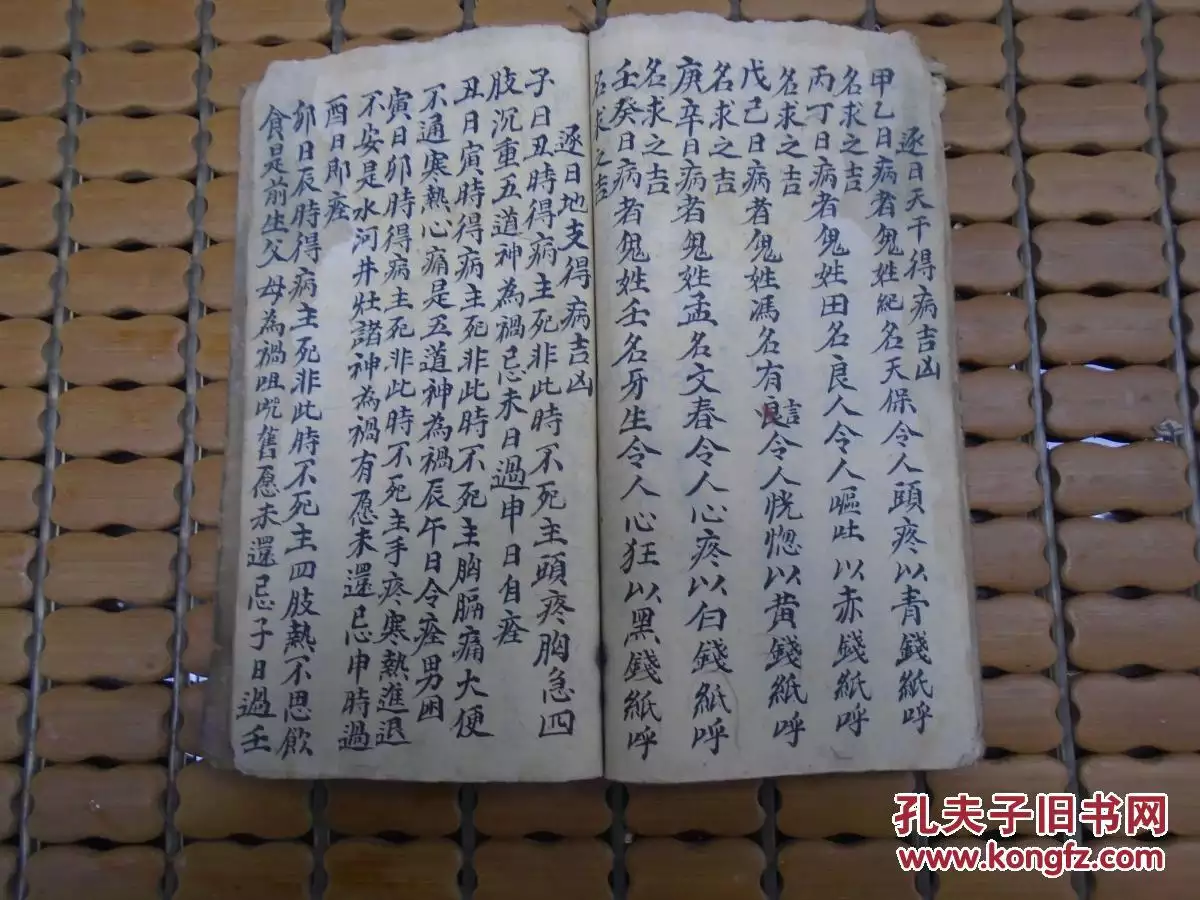 逐日天干得病吉凶
甲乙日病者鬼姓紀名天保令人頭疼以青錢紙呼
名求之吉
丙丁日病者鬼姓田名良人令人嘔吐以赤錢紙呼
名求之吉
戊己日病者鬼姓馮名有良言令人恍惚以黄錢紙呼
名求之吉
庚辛日病者鬼姓孟名文春令人心疼以白錢紙呼
名求之吉
壬癸日病者鬼姓壬名牙生令人心狂以黑錢紙呼
名求之吉
逐日地支得病吉凶
子日丑時得病主死非此時不死主頭疼胸急四
肢沉重五道神為禍忌未日過申日自痊
丑日寅時得病主死非此時不死主胸膈痛大便
不通寒熱心痛是五道神為禍辰午日令痊男困
寅日卯時得病主死非此時不死主手疼寒熱進退
不安是水河井灶諸神為禍有愿未還忌申時過
酉日即痊
卯日辰時得病主死非此時不死主四肢熱不思飲
食是前生父母為禍咀咒舊愿未還忌子日過壬
孔夫子旧书网
www.kongfz.com